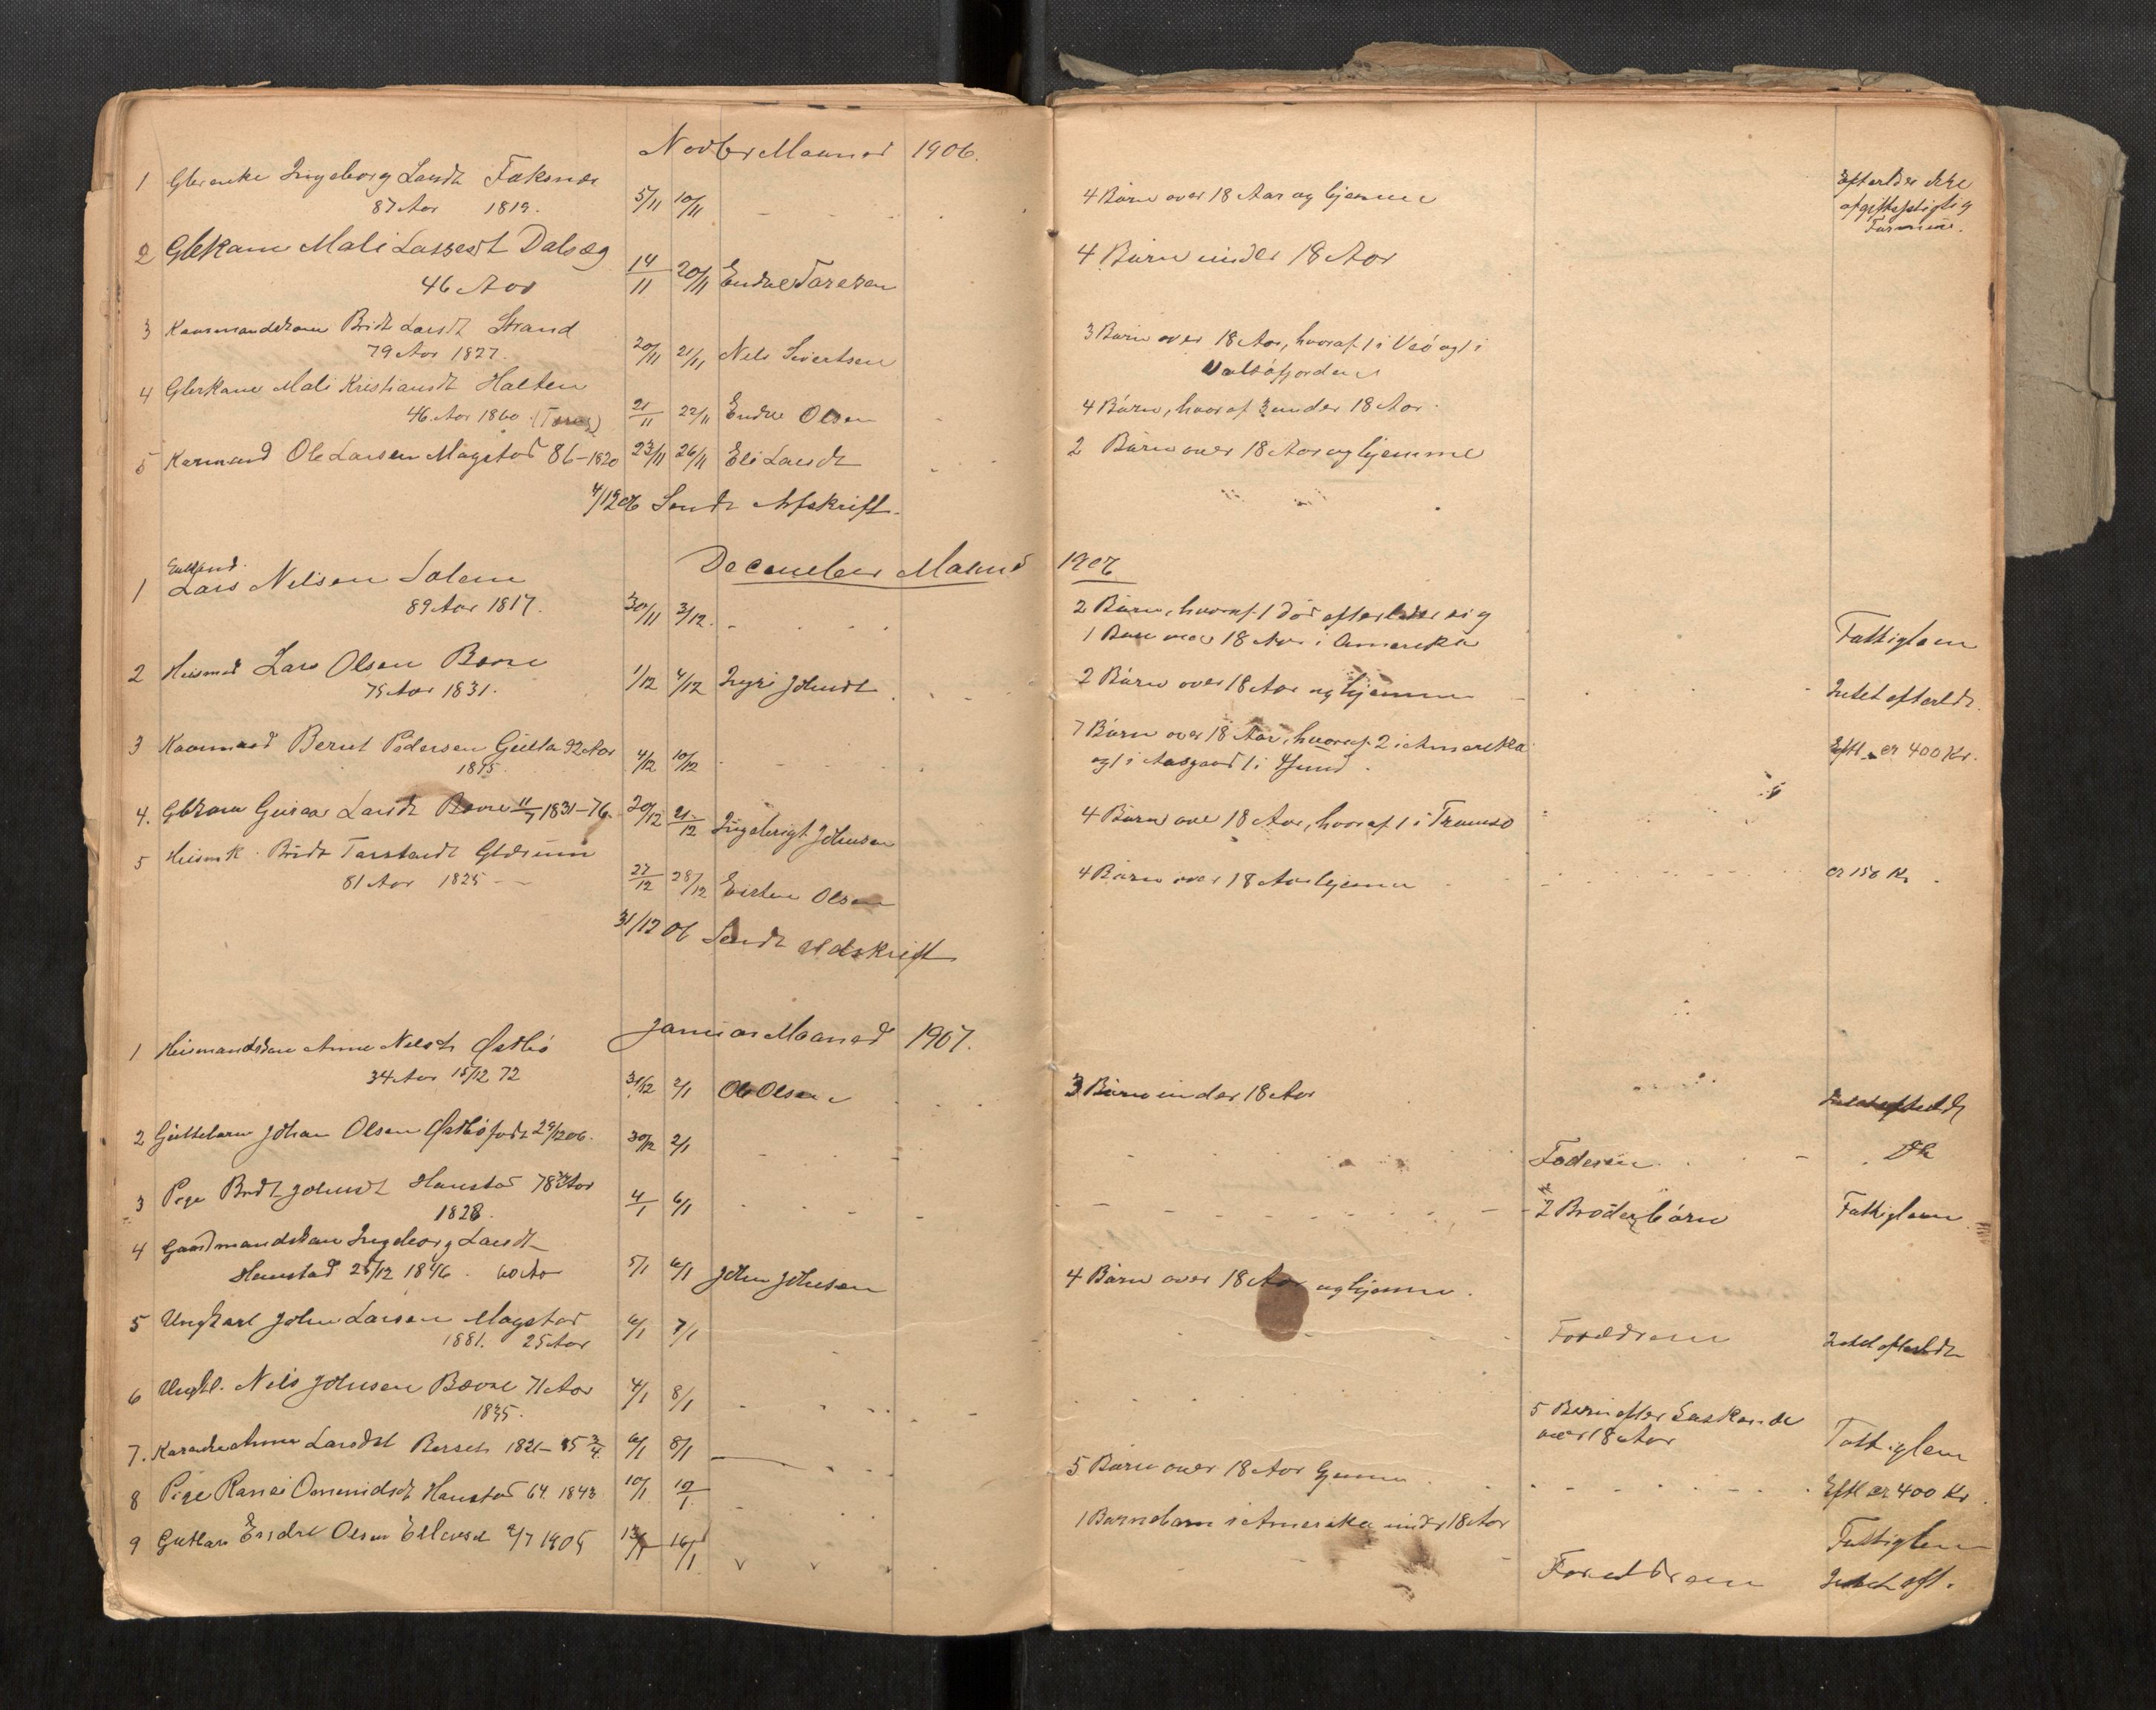 Novbr Maaned 1906.
1 Gbrenke Ingeborg Larsdt Foksnæs
87 Aar 1819. 5/11 10/11 4 Børn over 18 Aar og hjemme Efterlder ikke afgiftspligtig Formue.
2 Gbrkone Mali Lassesdt Dalsæg
46 Aar 14/11 20/11 Endre Toresen 4 Børn under 18 Aar
3 Kaarmandskone Bridt Larsdt Strand
79 Aar 1827. 20/11 21/11 Nels Sivertsen 3 Børn over 18 Aar, hvoraf 1 i Veø og 1 i
Valsøfjorden
4 Gbrkone Mali Kristiansdt Halten
46 Aar 1860 21/11 22/11 Endre Olsen 4 Børn, hvoraf 3 under 18 Aar.
5 Karmand Ole Larsen Magstad 86-1820 23/11 26/11 Eli Larsdt 2 Børn over 18 Aar og hjemme
4/12 06 Sendt Afskrift.
December Maaned 1906
1 Enkemd. Lars Nilsen Solem
89 Aar 1817. 30/11 3/12 2 Børn, hvoraf 1 død efterlader sig
1 Barn over 18 Aar i Amerika Fattiglem
2 Huismd Lars Olsen Bævre
75 Aar 1831. 1/12 4/12 Ingri Johnsdt 2 Børn over 18 Aar og hjemme Intet efterldt.
3 Kaarmand Bernt Pedersen Gulla 92 Aar
1815. 4/12 10/12 7 Børn over 18 Aar, hvoraf 2 i Amerika
og 1 i Aasgaard 1 i Efterl. er 400 Kr.
4. Gbkone Guraa Larsdt Bævre 11/7 1831-76. 20/12 21/12 Ingebrigt Johnsen 4 Børn over 18 Aar, hvoraf 1 i Tromsø
5 Huismk. Bridt Tarstandt Glærum
81 Aar 1825 27/12 28/12 Eisten Olsen 4 Børn over 18 Aar hjemme er 150 Kr.
31/12 06 Sendt Udskrift
Januar Maaned 1907.
1 Huismandskone Anne Nilsdt Østbø
34 Aar 15/12 72 31/12 2/1 Ole Olsen 3 Børn under 18 Aar Intet efterldt
2 Guttebarn Johan Olsen Østbø født 29/12 06. 30/12 2/1 Faderen Do
3 Pige Bridt Johnsdt Hanstad 78 Aar
1828. 4/1 6/1 2 Broderbørn Fattiglem
4 Gaardmandskone Ingeborg Larsdt
Hanstad 25/12 1846. 60 Aar 5/1 6/1 John Johnsen 4 Børn over 18 Aar og hjemme.
5 Ungkarl John Larsen Magstad
1881. 25 Aar 6/1 7/1 Forældrene Intet efterldt
6 Ungkl. Nils Johnsen Bævre 71 Aar
1835. 4/1 8/1 5 Børn efter Søskende
over 18 Aar Fattiglem
7. Anne Larsdtt 1821-85 3/4 6/1 8/1 5 Børn over 18 Aar hjemme Eftl er 400 Kr.
8 Pige Ranei Omundsdt Hanstad 64. 1843 10/1 12/1 1 Barnebarn i Amerika under 18 Aar Fattiglem
9 Gutbarn Endre Olsen 2/7 1905 13/1 16/1 Forældrene Intet eft.